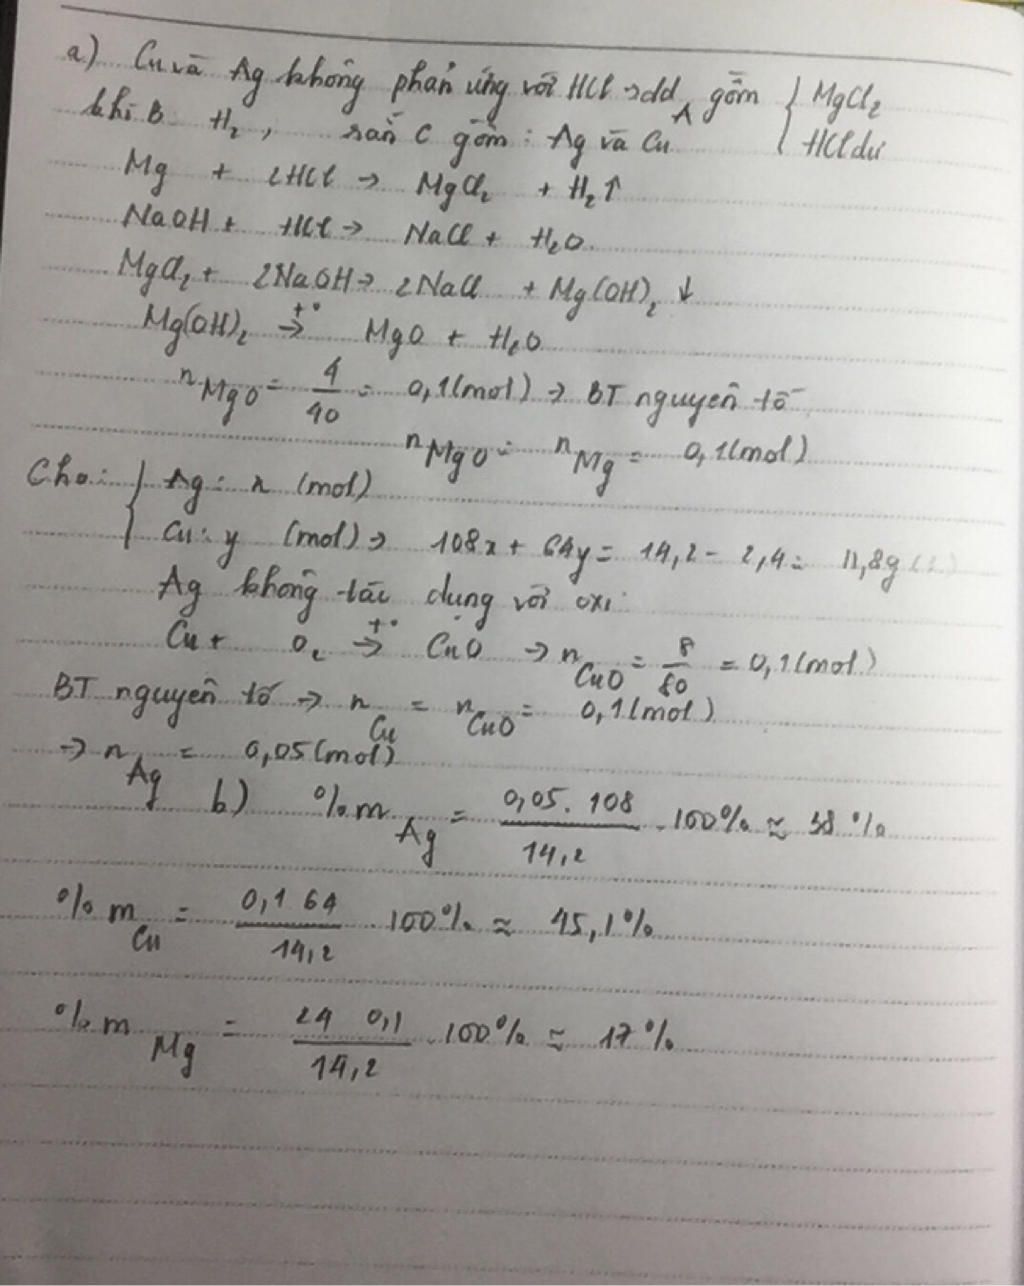 a) Cu và Ag không phản ứng với HCl → dd A gồm { MgCl₂
khí B H₂, rắn C gồm: Ag và Cu { HCl dư
Mg + 2HCl → MgCl₂ + H₂↑
NaOH + HCl → NaCl + H₂O
MgCl₂ + 2NaOH → 2NaCl + Mg(OH)₂ ↓
Mg(OH)₂ →t° MgO + H₂O
nMgO = 4/40 = 0,1(mol) → BT nguyên tố
nMgO = nMg = 0,1(mol)
Cho: { Ag: x (mol)
Cu: y (mol) → 108x + 64y = 14,2 - 2,4 = 11,8g
Ag không tác dụng với oxi
Cu + O₂ →t° CuO → nCuO = 8/80 = 0,1(mol)
BT nguyên tố → nCu = nCuO = 0,1(mol)
→ nAg = 0,05(mol)
b) %mAg = 0,05.108/14,2 .100% ≈ 38%
%mCu = 0,1.64/14,2 .100% ≈ 45,1%
%mMg = 24 0,1/14,2 .100% ≈ 17%